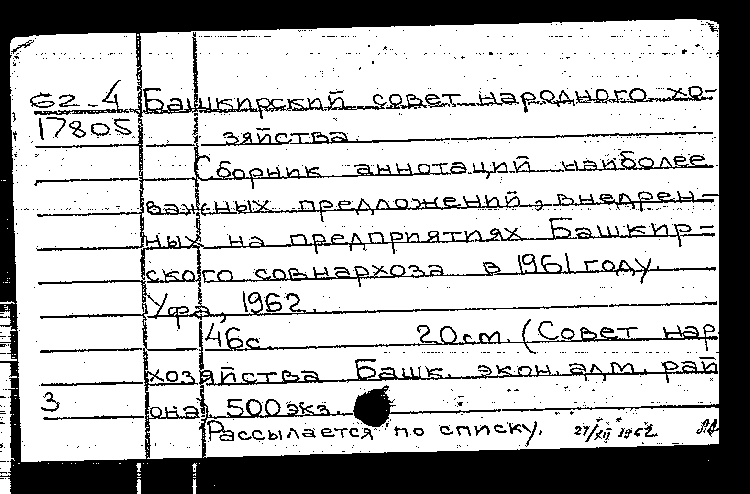 62-4 Башкирский совет народного хо-
17805 зяйства.
Сборник аннотаций наиболее
важных предложений, внедрен-
ных на предприятиях Башкир-
ского совнархоза в 1961 году.
Уфа, 1962.
46с. 20см. (Совет нар
хозяйства Башк. экон. адм. рай
3 она). 500 экз.
Рассылается по списку. 27/XII 1962